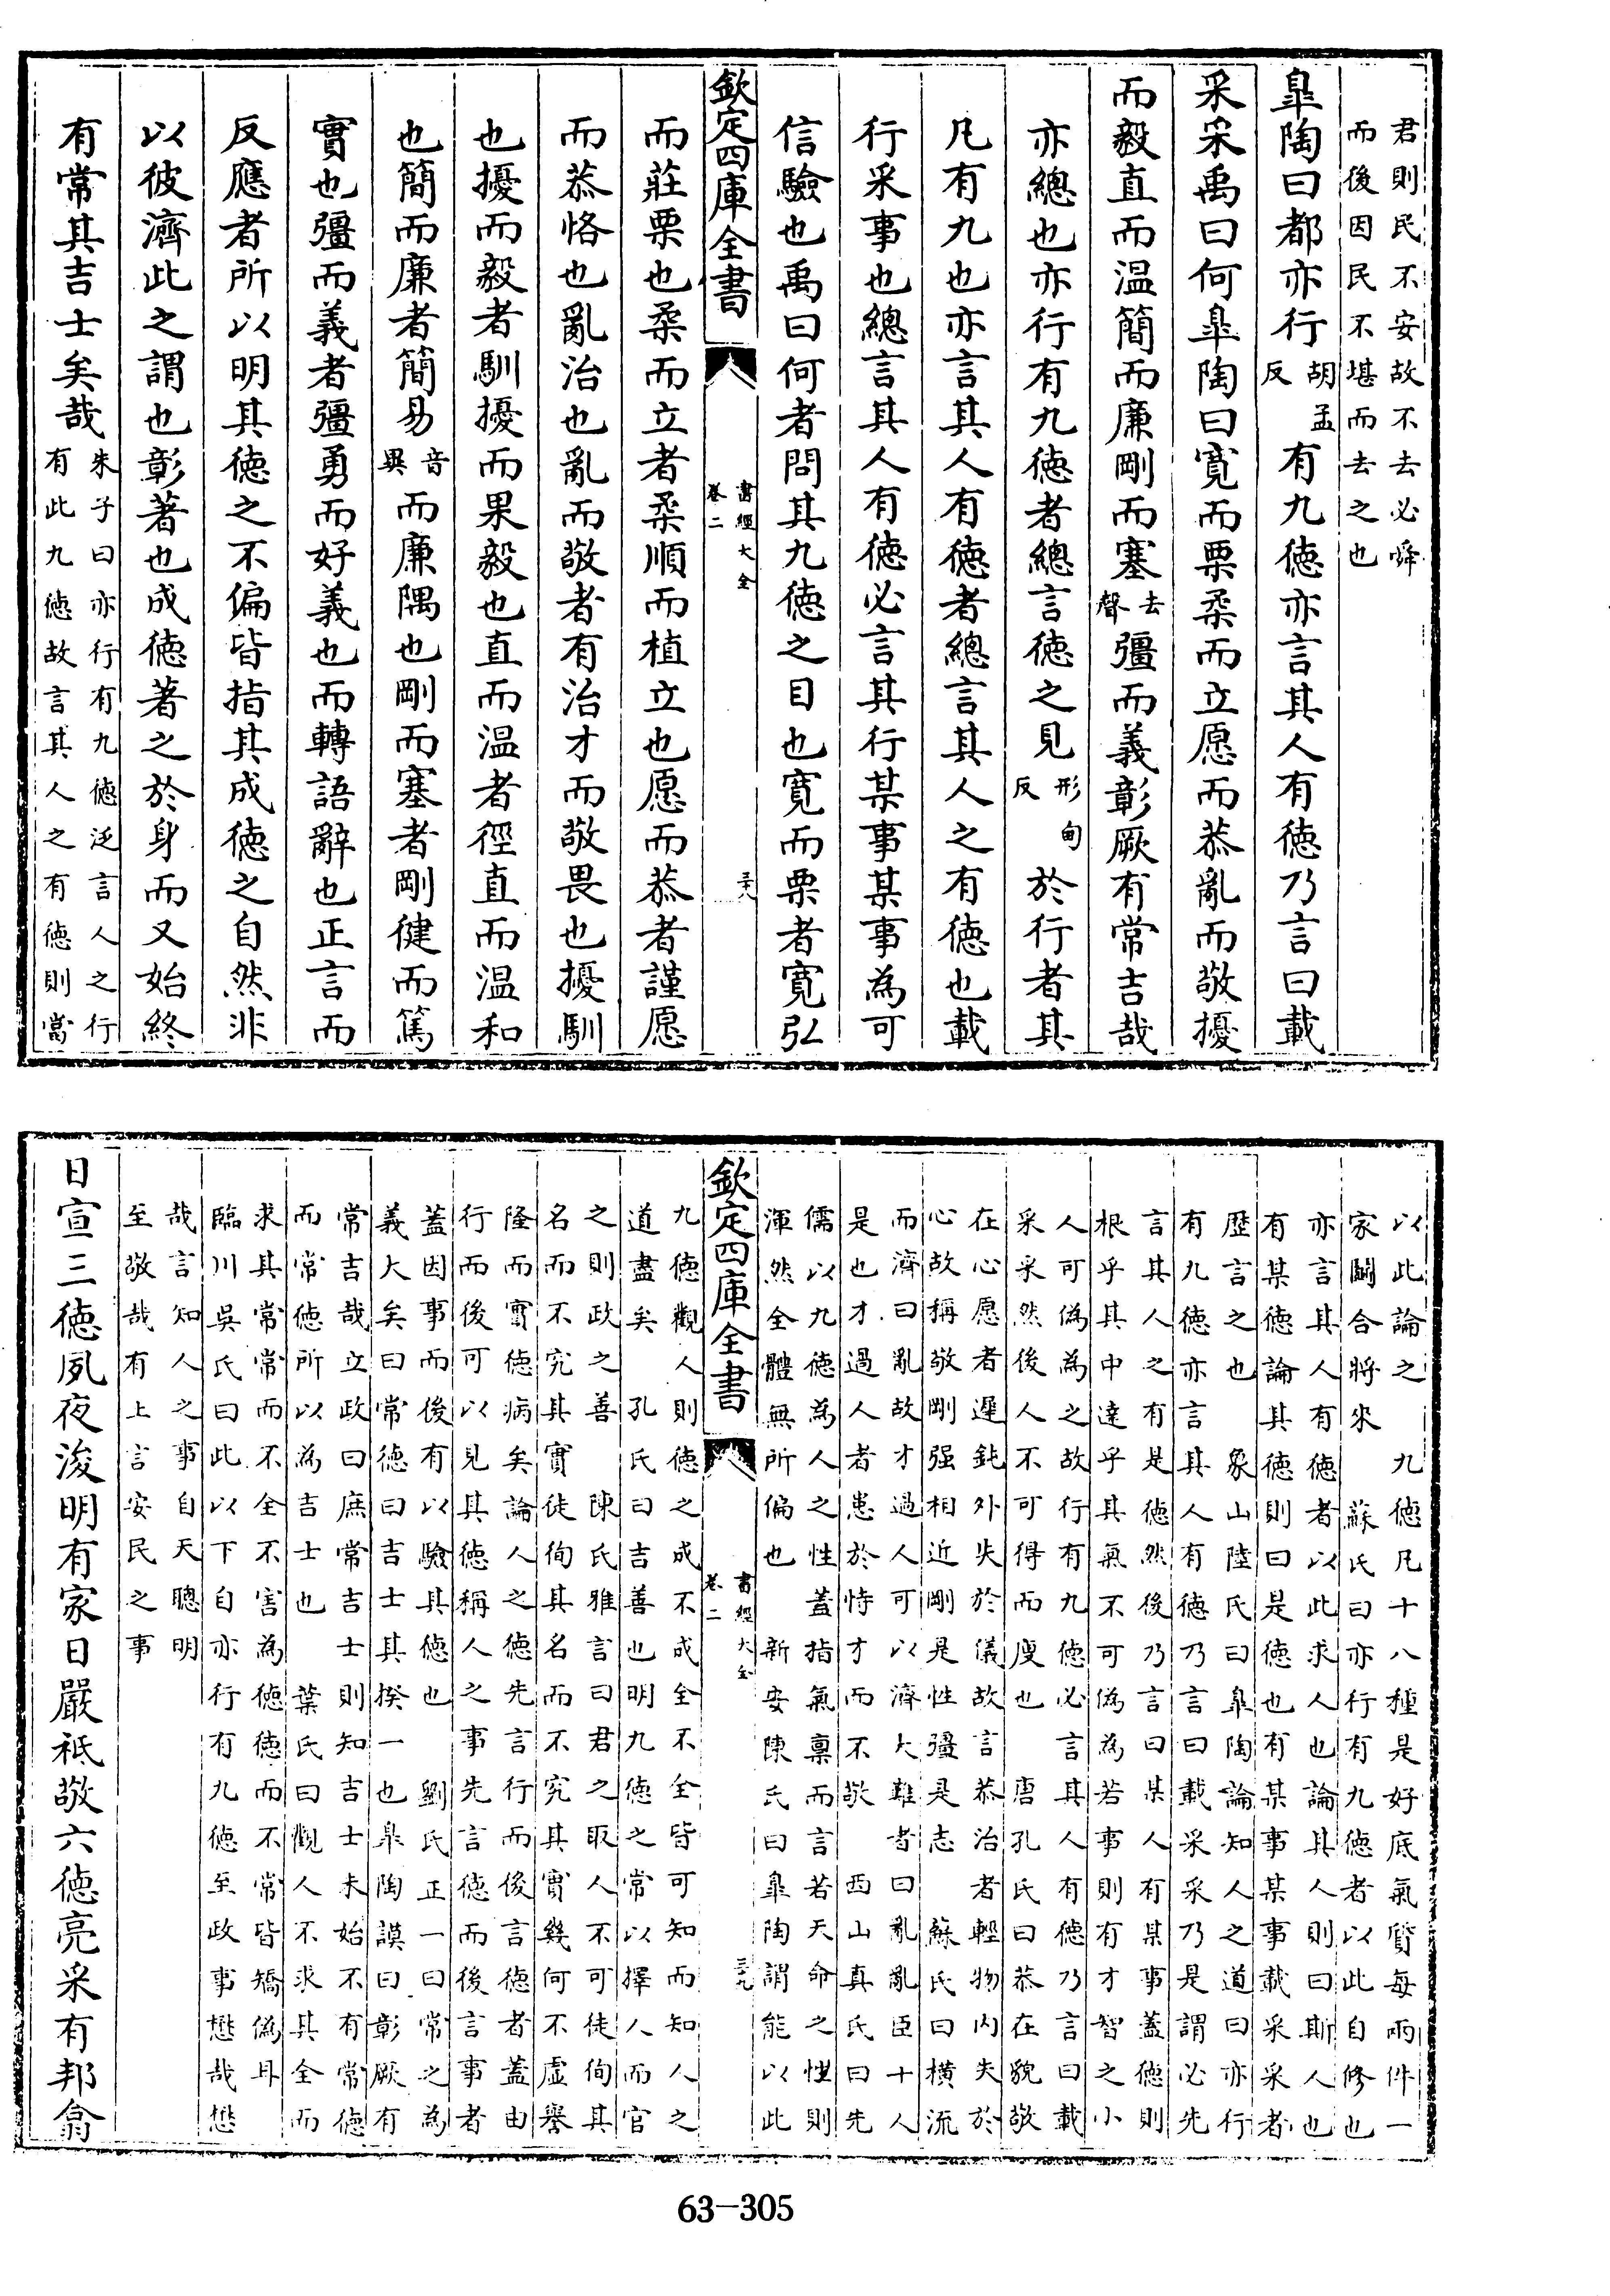 君則民不安故不去必舜
而後因民不堪而去之也
臯陶曰都亦行胡孟反有九德亦言其人有德乃言曰載
采采禹曰何臯陶曰寛而栗柔而立愿而恭亂而敬擾
而毅直而温簡而廉剛而塞去聲彊而義彰厥有常吉哉
亦總也亦行有九德者總言德之見形甸反於行者其
凡有九也亦言其人有德者總言其人之有德也載
行采事也總言其人有德必言其行某事某事為可
信驗也禹曰何者問其九德之目也寛而栗者寛弘
欽定四庫全書 書經大全 卷二 三十八
而莊栗也柔而立者柔順而植立也愿而恭者謹愿
而恭恪也亂治也亂而敬者有治才而敬畏也擾馴
也擾而毅者馴擾而果毅也直而温者徑直而温和
也簡而廉者簡易音異而廉隅也剛而塞者剛健而篤
實也彊而義者彊勇而好義也而轉語辭也正言而
反應者所以明其德之不偏皆指其成德之自然非
以彼濟此之謂也彰著也成德著之於身而又始終
有常其吉士矣哉
朱子曰亦行有九德泛言人之行
有此九德故言其人之有德則當
以此論之 九德凡十八種是好底氣質每兩件一
家鬭合將來 蘇氏曰亦行有九德者以此自修也
亦言其人有德者以此求人也論其人則曰斯人也
有某德論其德則曰是德也有某事某事載采采者
歴言之也 象山陸氏曰臯陶論知人之道曰亦行
有九德亦言其人有德乃言曰載采采乃是謂必先
言其人之有是德然後乃言曰某人有某事蓋德則
根乎其中達乎其氣不可偽為若事則有才智之小
人可偽為之故行有九德必言其人有德乃言曰載
采采然後人不可得而廋也 唐孔氏曰恭在貌敬
在心愿者遲鈍外失於儀故言恭治者輕物内失於
心故稱敬剛强相近剛是性彊是志 蘇氏曰横流
而濟曰亂故才過人可以濟大難者曰亂亂臣十人
是也才過人者患於恃才而不敬 西山真氏曰先
儒以九德為人之性蓋指氣稟而言若天命之性則
渾然全體無所偏也 新安陳氏曰臯陶謂能以此
欽定四庫全書 書經大全 卷二 三十九
九德觀人則德之成不成全不全皆可知而知人之
道盡矣 孔氏曰吉善也明九德之常以擇人而官
之則政之善 陳氏雅言曰君之取人不可徒徇其
名而不究其實徒徇其名而不究其實幾何不虛譽
隆而實德病矣論人之德先言行而後言德者蓋由
行而後可以見其德稱人之事先言德而後言事者
蓋因事而後有以驗其德也 劉氏正一曰常之為
義大矣曰常德曰吉士其揆一也臯陶謨曰彰厥有
常吉哉立政曰庶常吉士則知吉士未始不有常德
而常德所以為吉士也 葉氏曰觀人不求其全而
求其常常而不全不害為德德而不常皆矯偽耳
臨川吳氏曰此以下自亦行有九德至政事懋哉懋
哉言知人之事自天聰明
至敬哉有上言安民之事
日宣三德夙夜浚明有家日嚴祗敬六德亮采有邦翕
63-305